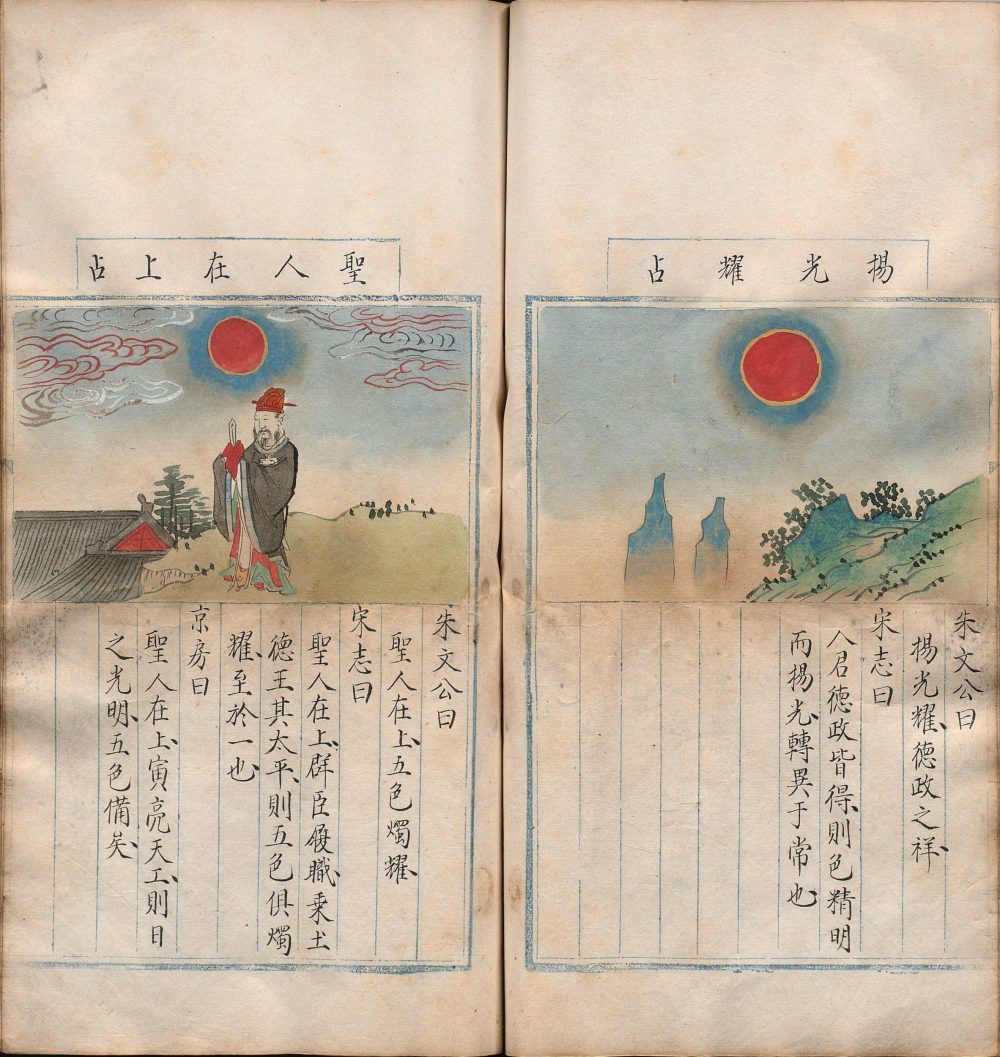 揚光耀占
朱文公曰
揚光耀、德政之祥、
宋志曰
人君德政皆得、則色精明
而揚光、轉異于常也、
聖人在上占
朱文公曰
聖人在上、五色燭耀、
宋志曰
聖人在上、群臣履職、乘土
德王其太平、則五色俱燭
耀、至於一也、
京房曰
聖人在上、寅亮天工、則日
之光明、五色備矣、